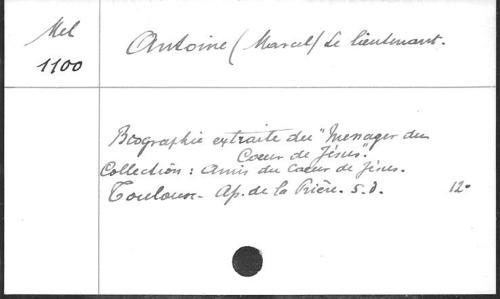 Mel
1100
Antoine (Marcel) Le lieutenant.
Biographie extraite du "Messager du
Coeur de Jésus".
Collection : Amis du Coeur de Jésus.
Toulouse - Ap. de la Prière. s.d. 12º